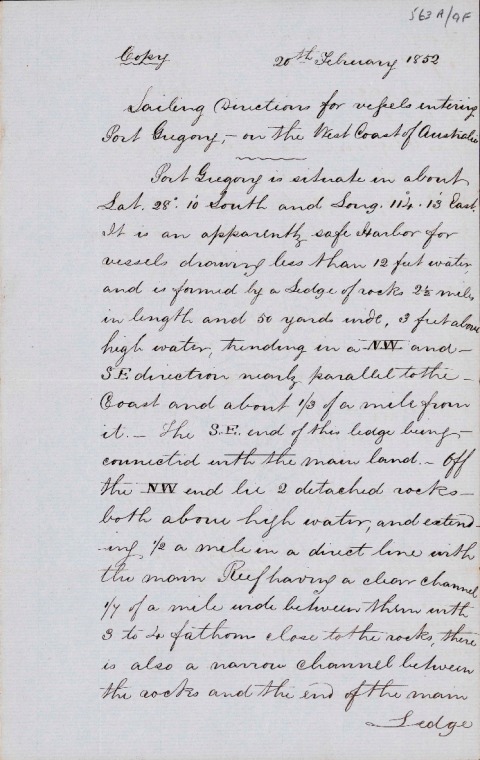 563 A/9F
Copy 20th February 1852
Sailing Directions for vessels entering
Port Gregory, - on the West Coast of Australia
Port Gregory is situate in about
Lat. 28°. 10 South and Long. 114°. 13 East.
It is an apparently safe Harbor for
vessels drawing less than 12 feet water,
and is formed by a Ledge of rocks 2½ miles
in length and 50 yards wide, 3 feet above
high water, trending in a NW and -
S.E. direction nearly parallel to the -
Coast and about 1/3 of a mile from
it. - The S.E. end of this ledge being -
connected with the main land. - Off
the NW end lie 2 detached rocks -
both above high water, and extend-
ing, ½ a mile in a direct line with
the main Reef having a clear channel
1/7 of a mile wide between them with
3 to 4 fathom close to the rocks, there
is also a narrow channel between
the rocks and the end of the main
Ledge